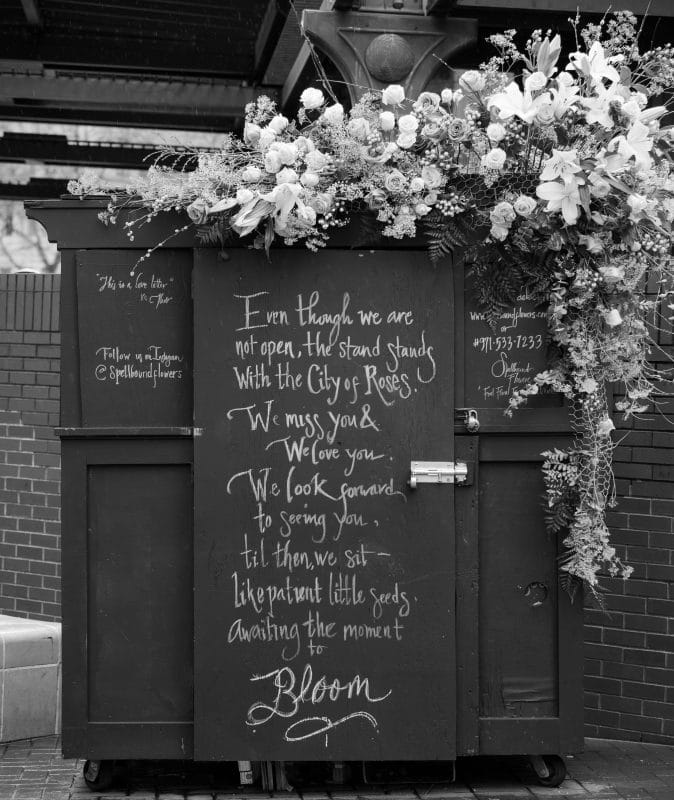 "This is a love letter"
Follow us on Instagram
@spellboundflowers
Even though we are
not open, the stand stands
With the City of Roses.
We miss you &
We love you.
We look forward
to seeing you,
til then, we sit —
like patient little seeds.
Awaiting the moment
to
Bloom
#971-533-7233
Spellbound
Flowers